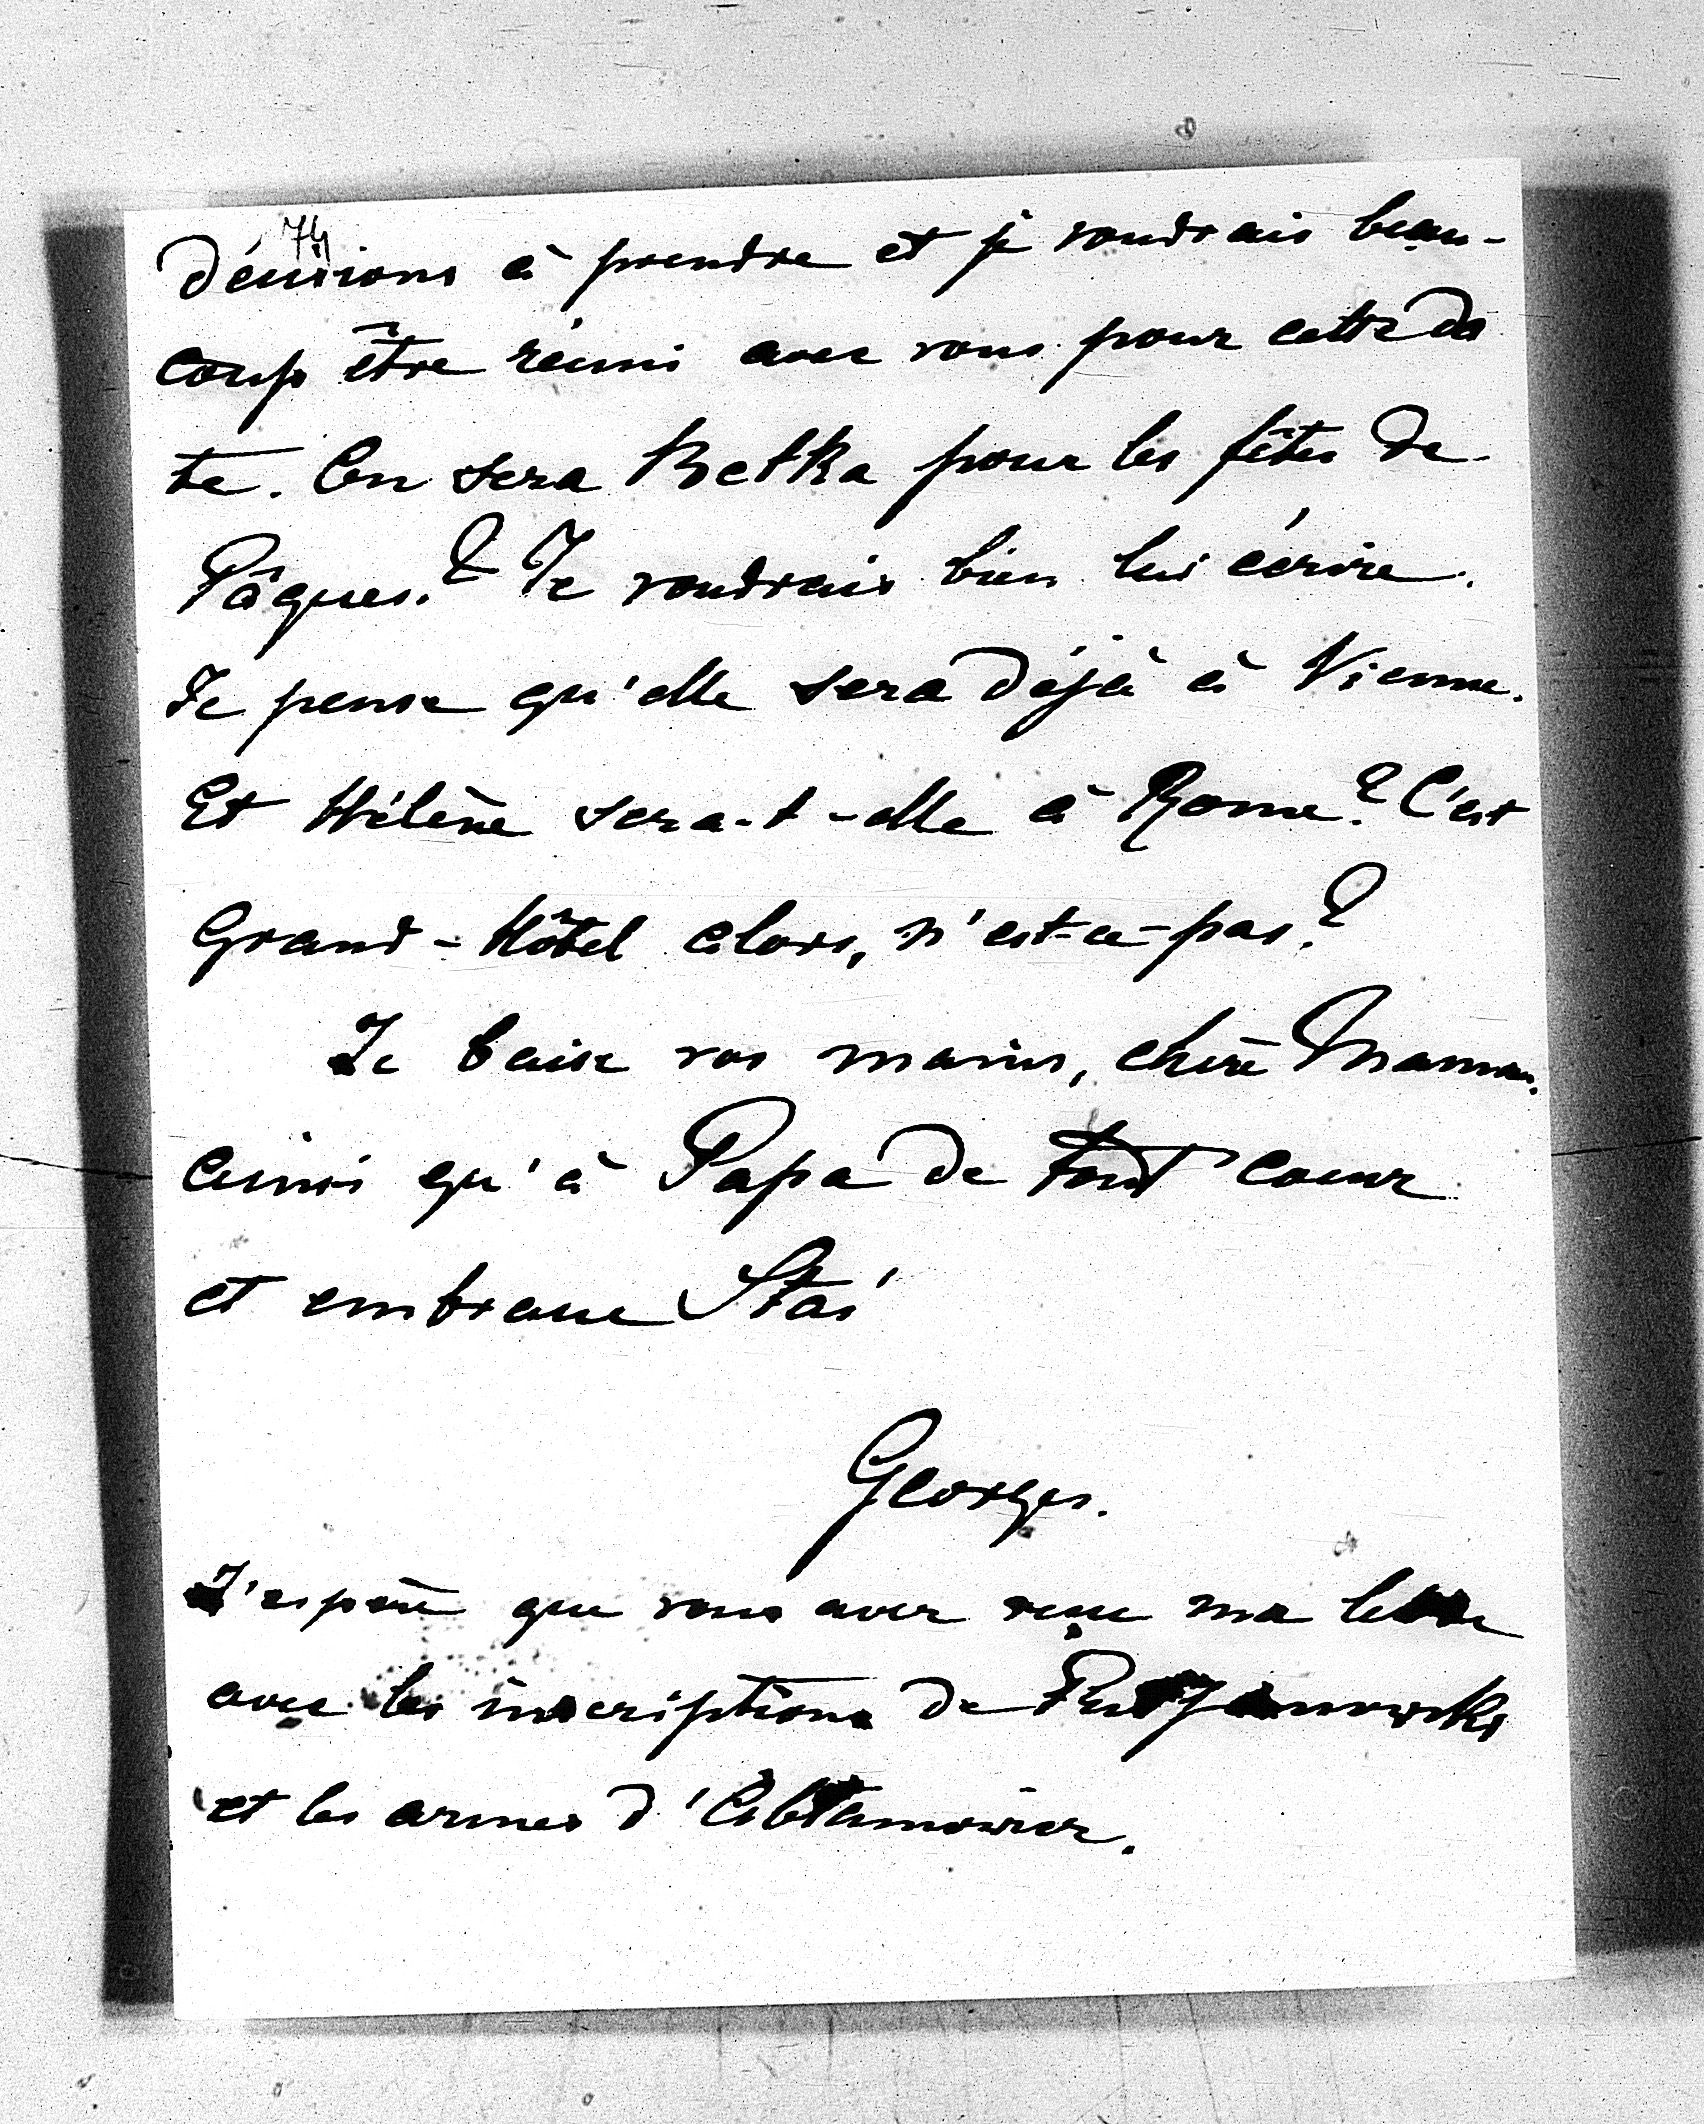 74
décisions à prendre et je voudrais beau-
coup être réuni avec vous pour cette da
te. Ou sera Betka pour les fêtes de
Pâques? Je voudrais bien lui écrire.
Je pense qu'elle sera déjà à Vienne.
Et Hélène sera-t-elle à Rome? C'est
Grand-Hôtel alors, n'est-ce-pas?
Je baise vos mains, chère Maman.
ainsi qu'à Papa de tout coeur
et embrasse Staś
Georges.
J'espère que vous avez reçu ma lettre
avec les inscriptions de
et les armes d'